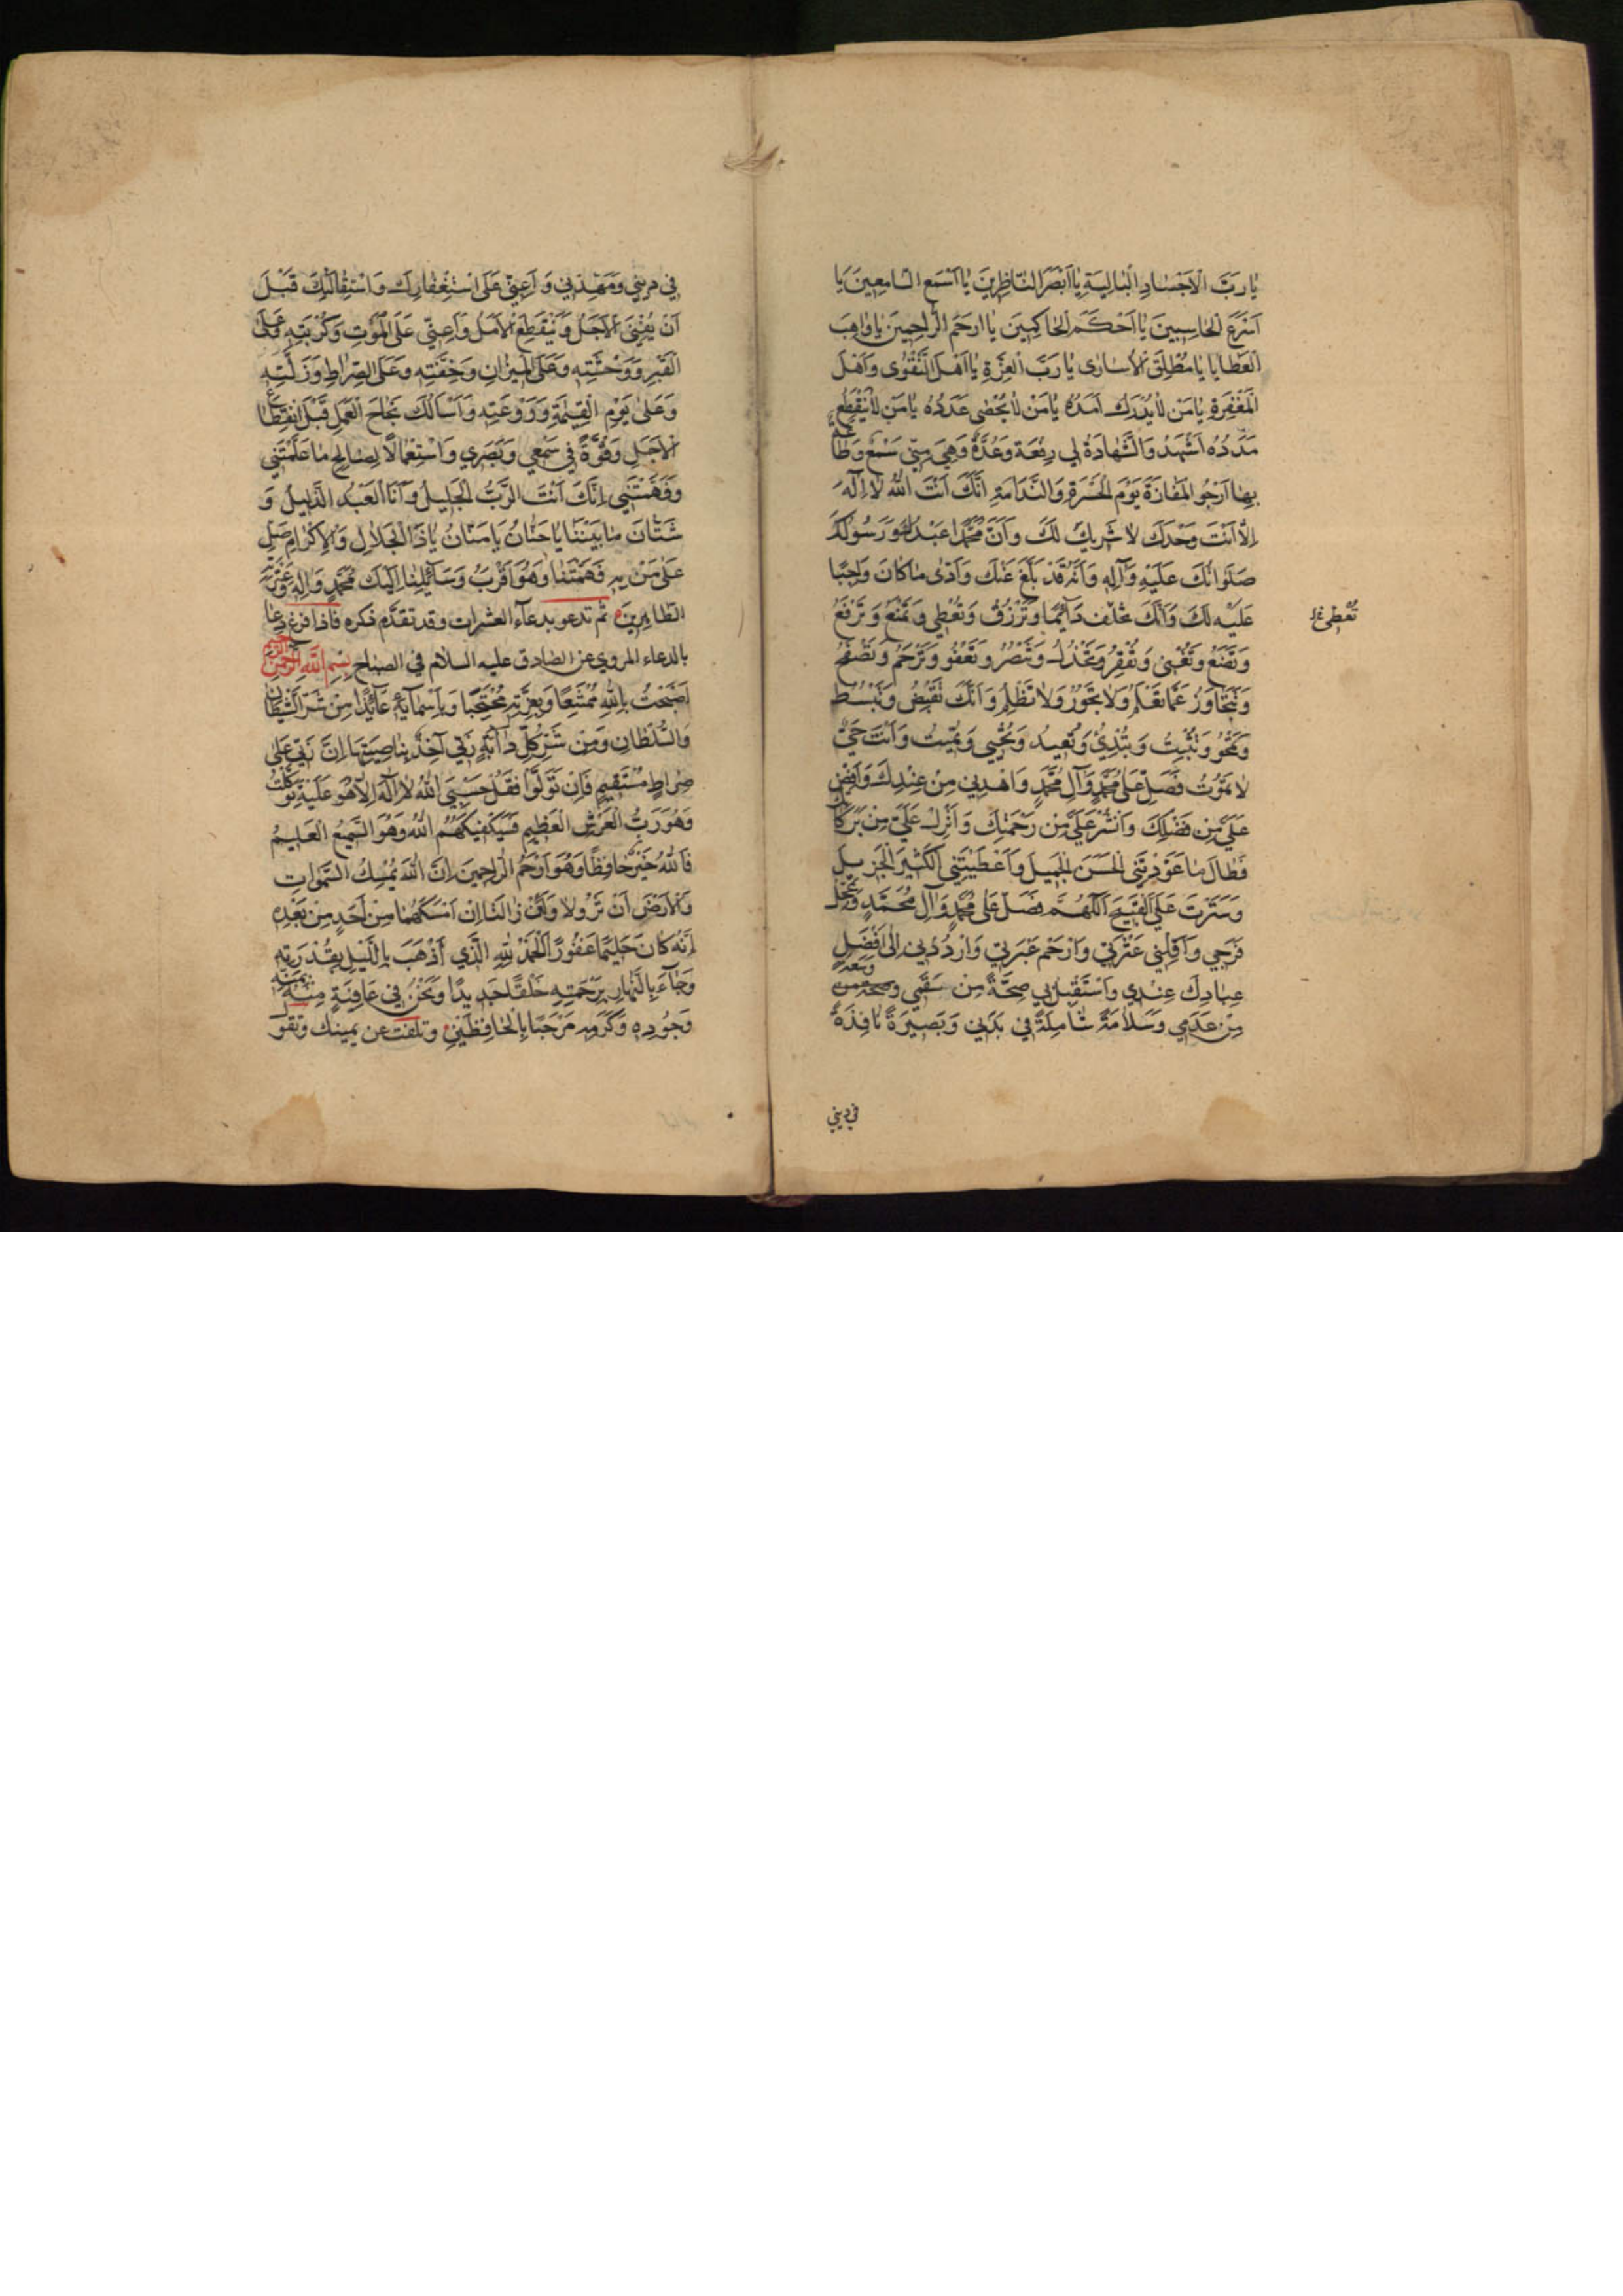 يا رَبَّ الْاَجْسٰادِ الْبٰالِيَةِ يٰا اَبْصَرَ النّٰاظِرينَ يٰا اَسْمَعَ السّٰامِعينَ يٰا
اَسْرَعَ الْحٰاسِبينَ يٰا اَحْكَمَ الْحٰاكِمينَ يٰا اَرحَمَ الرّٰاحِمينَ يٰا وٰاهِبَ
الْعَطٰايٰا يٰا مُطْلِقَ الْاُسٰارى يٰا رَبَّ الْعِزَّةِ يٰا اَهْلَ التَّقْوٰى وَاَهْلَ
الْمَغْفِرَةِ يٰا مَنْ لٰا يُدْرَكُ اَمَدُهُ يٰا مَنْ لٰا يُحْصٰى عَدَدُهُ يٰا مَنْ لٰا يَنْقَطِعُ
مَدَدُهُ اَشْهَدُ وَالشَّهٰادَةُ لي رِفْعَة وَعُدَّةٌ وَهِيَ مِنّي سَمْعٌ وَطٰاعَةٌ
بِهٰا اَرْجُو الْمَفٰازَةَ يَوْمَ الْحَسْرَةِ وَالنَّدٰامَةِ اِنَّكَ اَنْتَ اللّٰهُ لٰا اِلٰهَ
اِلّٰا اَنْتَ وَحْدَكَ لٰا شَرِيكَ لَكَ وَاَنَّ مُحَمَّدًا عَبْدُكَ وَرَسُولُكَ
صَلَوٰاتُكَ عَلَيْهِ وَآلِهِ وَاَنَّهُ قَدْ بَلَّغَ عَنْكَ وَاَدّٰى مٰا كٰانَ وٰاجِبًا
عَلَيْهِ لَكَ وَاَنَّكَ تَخْلُقُ دٰآئِمًا وَتَرْزُقُ وَتُعْطي وَتَمْنَعُ وَتَرْفَعُ
تُعْطي
وَتَضَعُ وَتُغْني وَتُفْقِرُ وَتَخْذُلُ وَتَنْصُرُ وَتَعْفُو وَتَرْحَمُ وَتَصْفَحُ
وَتَتَجٰاوَزُ عَمّٰا تَعْلَمُ وَلٰا تَجُورُ وَلٰا تَظْلِمُ وَاَنَّكَ تَقْبِضُ وَتَبْسُطُ
وَتَمْحُو وَتُثْبِتُ وَتُبْدِئُ وَتُعيدُ وَتُحْيي وَتُميتُ وَاَنْتَ حَيٌّ
لٰا تَمُوتُ فَصَلِّ عَلٰى مُحَمَّدٍ وَآلِ مُحَمَّدٍ وَاهْدِني مِنْ عِنْدِكَ وَاَفِضْ
عَلَيَّ مِنْ فَضْلِكَ وَانْشُرْ عَلَيَّ مِنْ رَحْمَتِكَ وَاَنْزِلْ عَلَيَّ مِنْ بَرَكٰاتِكَ
فَطٰالَ مٰا عَوَّدْتَنِي الْحَسَنَ الْجَميلَ وَاَعْطَيْتَنِي الْكَثيرَ الْجَزيلَ
وَسَتَرْتَ عَلَيَّ الْقَبيحَ اَللّٰهُمَّ فَصَلِّ عَلٰى مُحَمَّدٍ وَآلِ مُحَمَّدٍ وَعَجِّلْ
فَرَجي وَاَقِلْني عَثْرَتي وَارْحَمْ عَبْرَتي وَارْدُدْني اِلٰى اَفْضَلِ
عِبٰادِكَ عِنْدي وَاسْتَقْبِلْ بي صِحَّةً مِنْ سُقْمي وَسَعَةً
مِنْ عَدَمي وَسَلٰامَةً شٰامِلَةً في بَدَني وَبَصيرَةً نٰافِذَةً
في ديني
في ديني وَمَهِّدْني وَاَعِنّي عَلَى اسْتِغْفٰارِكَ وَاسْتِقٰالَتِكَ قَبْلَ
اَنْ يَفْنَى الْاَجَلُ وَيَنْقَطِعَ الْاَمَلُ وَاَعِنّي عَلَى الْمَوْتِ وَكُرْبَتِهِ وَعَلَى
الْقَبْرِ وَوَحْشَتِهِ وَعَلَى الْميزٰانِ وَخِفَّتِهِ وَعَلَى الصِّرٰاطِ وَزَلَّتِهِ
وَعَلٰى يَوْمِ الْقِيٰمَةِ وَرَوْعَتِهِ وَاَسْأَلُكَ نَجٰاحَ الْعَمَلِ قَبْلَ انْقِطٰاعِ
الْاَجَلِ وَقُوَّةً في سَمْعي وَبَصَري وَاسْتِعْمٰالًا لِصٰالِحِ مٰا عَلَّمْتَني
وَفَهَّمْتَني اِنَّكَ اَنْتَ الرَّبُّ الْجَليلُ وَاَنَا الْعَبْدُ الذَّليلُ وَ
شَتّٰانَ مٰا بَيْنَنٰا يٰا حَنّٰانُ يٰا مَنّٰانُ يٰا ذَا الْجَلٰالِ وَالْاِكْرٰامِ صَلِّ
عَلٰى مَنْ بِهِ فَهَّمْتَنٰا وَهُوَ اَقْرَبُ وَسٰآئِلِنٰا اِلَيْكَ مُحَمَّدٍ وَآلِهِ وَعِتْرَتِهِ
الطّٰاهِرينَ ثم تدعو بدعآء العشرات وقد تقدّم ذكره فاذا فرغ دعا
بالدعاء المروي عن الصادق عليه السلام في الصباح بِسْمِ اللّٰهِ الرَّحْمٰنِ الرَّحيمِ
اَصْبَحْتُ بِاللّٰهِ مُمْتَنِعًا وَبِعِزَّتِهِ مُحْتَجِبًا وَبِاَسْمٰآئِهِ عٰآئِذًا مِنْ شَرِّ الشَّيْطٰانِ
وَالسُّلْطٰانِ وَمِنْ شَرِّ كُلِّ دٰآبَّةٍ رَبّي آخِذٌ بِنٰاصِيَتِهٰا اِنَّ رَبّي عَلٰى
صِرٰاطٍ مُسْتَقيمٍ فَاِنْ تَوَلَّوْا فَقُلْ حَسْبِيَ اللّٰهُ لٰا اِلٰهَ اِلّٰا هُوَ عَلَيْهِ تَوَكَّلْتُ
وَهُوَ رَبُّ الْعَرْشِ الْعَظيمِ فَسَيَكْفيكَهُمُ اللّٰهُ وَهُوَ السَّميعُ الْعَليمُ
فَاللّٰهُ خَيْرٌ حٰافِظًا وَهُوَ اَرْحَمُ الرّٰاحِمينَ اِنَّ اللّٰهَ يُمْسِكُ السَّمٰوٰاتِ
وَالْاَرْضَ اَنْ تَزُولٰا وَلَئِنْ زٰالَتٰا اِنْ اَمْسَكَهُمٰا مِنْ اَحَدٍ مِنْ بَعْدِهِ
اِنَّهُ كٰانَ حَليمًا غَفُورًا اَلْحَمْدُ لِلّٰهِ الَّذي اَذْهَبَ بِاللَّيْلِ بِقُدْرَتِهِ
وَجٰآءَ بِالنَّهٰارِ بِرَحْمَتِهِ خَلْقًا جَديدًا وَنَحْنُ في عٰافِيَةٍ مِنْهُ بِمَنِّهِ
وَجُودِهِ وَكَرَمِهِ مَرْحَبًا بِالْحٰافِظَيْنِ وتلتفت عن يمينك وتقول